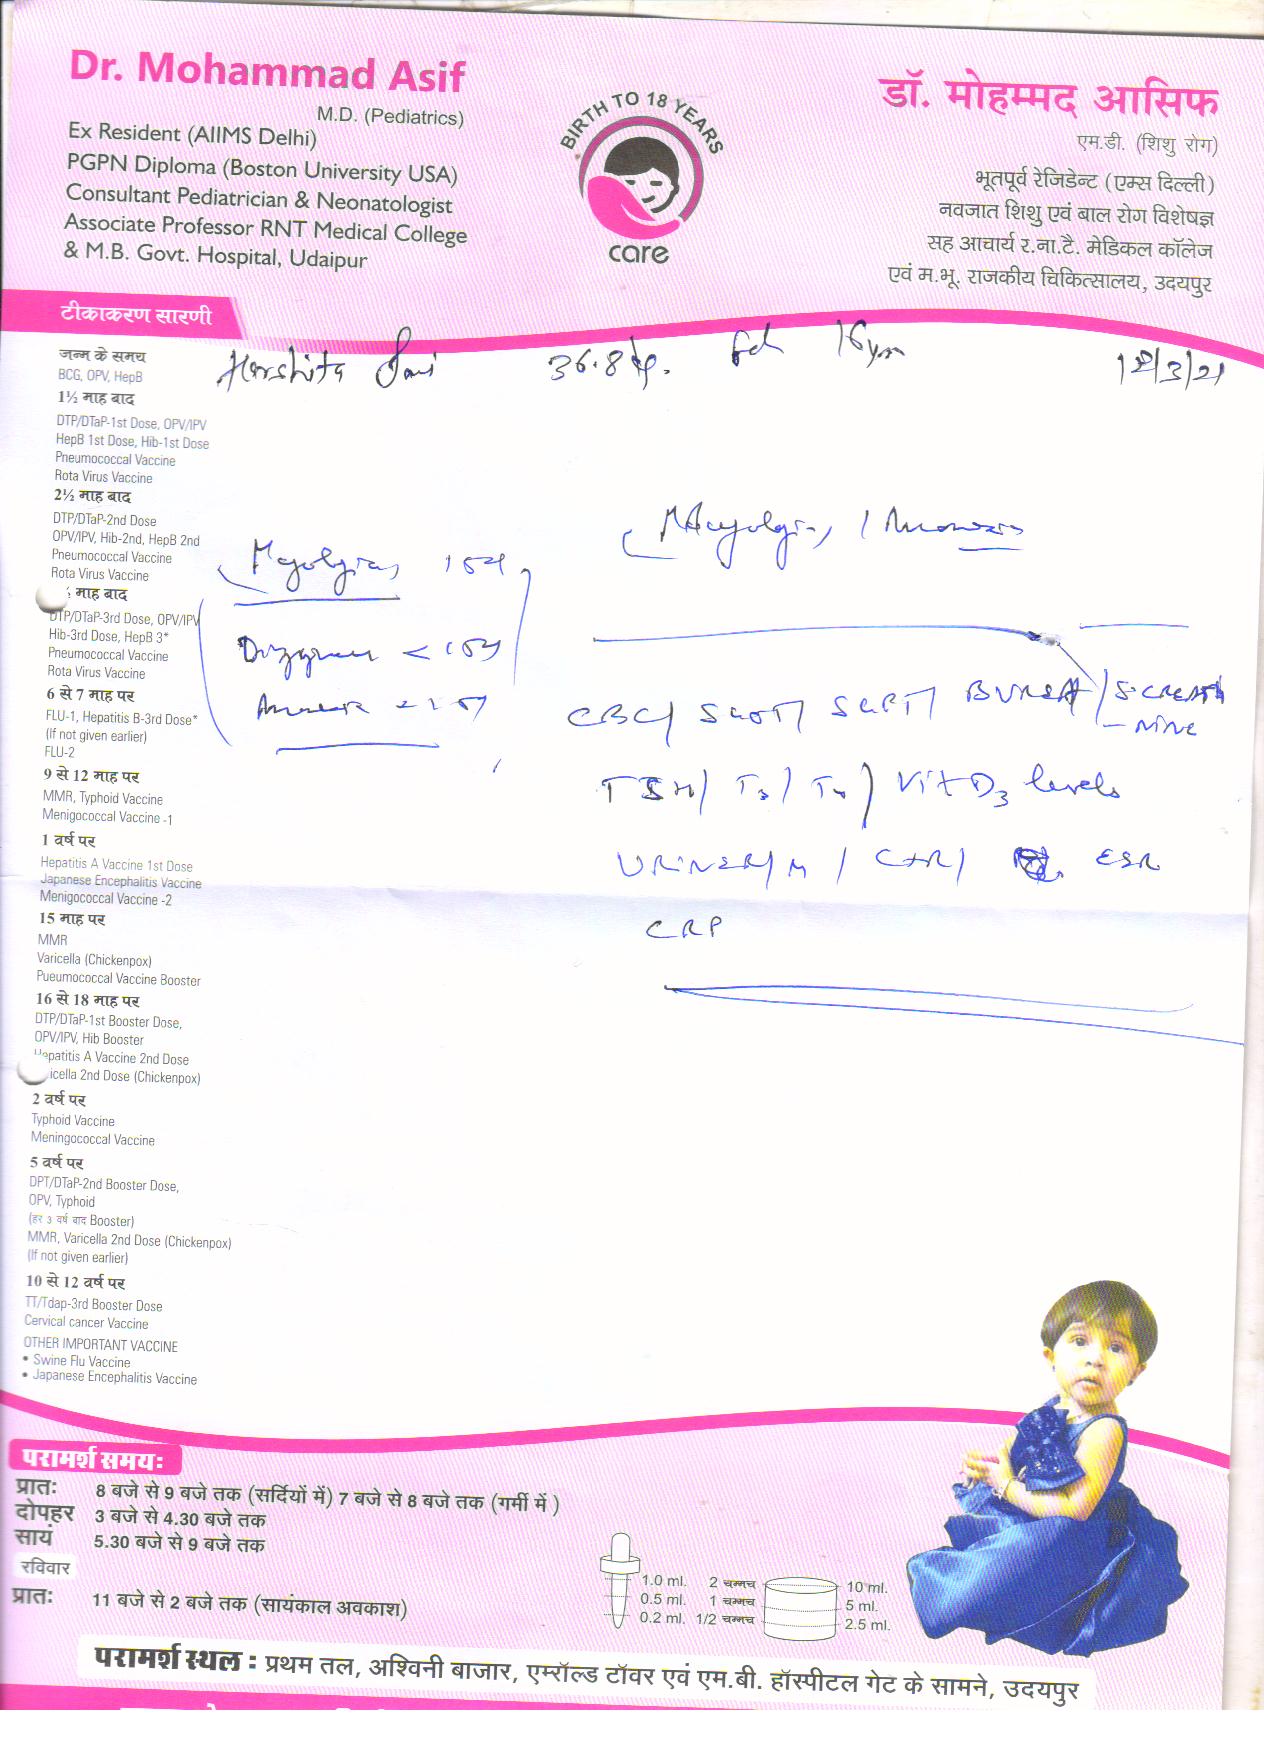 Dr. Mohammad Asif
M.D. (Pediatrics)
Ex Resident (AIIMS Delhi)
PGPN Diploma (Boston University USA)
Consultant Pediatrician & Neonatologist
Associate Professor RNT Medical College
& M.B. Govt. Hospital, Udaipur
BIRTH TO 18 YEARS
care
डॉ. मोहम्मद आसिफ
एम.डी. (शिशु रोग)
भूतपूर्व रेजिडेन्ट (एम्स दिल्ली)
नवजात शिशु एवं बाल रोग विशेषज्ञ
सह आचार्य र.ना.टै. मेडिकल कॉलेज
एवं म.भू. राजकीय चिकित्सालय, उदयपुर
टीकाकरण सारणी
Harshita 36.8 16 yrs
जन्म के समय
BCG, OPV, HepB
1½ माह बाद
DTP/DTaP-1st Dose, OPV/IPV
HepB 1st Dose, Hib-1st Dose
Pneumococcal Vaccine
Rota Virus Vaccine
2½ माह बाद
DTP/DTaP-2nd Dose
OPV/IPV, Hib-2nd, HepB 2nd
Pneumococcal Vaccine
Rota Virus Vaccine
माह बाद
DTP/DTaP-3rd Dose, OPV/IPV
Hib-3rd Dose, HepB 3*
Pneumococcal Vaccine
Rota Virus Vaccine
6 से 7 माह पर
FLU-1, Hepatitis B-3rd Dose*
(If not given earlier)
FLU-2
9 से 12 माह पर
MMR, Typhoid Vaccine
Menigococcal Vaccine -1
1 वर्ष पर
Hepatitis A Vaccine 1st Dose
Japanese Encephalitis Vaccine
Menigococcal Vaccine -2
15 माह पर
MMR
Varicella (Chickenpox)
Pueumococcal Vaccine Booster
16 से 18 माह पर
DTP/DTaP-1st Booster Dose,
OPV/IPV, Hib Booster
Hepatitis A Vaccine 2nd Dose
icella 2nd Dose (Chickenpox)
2 वर्ष पर
Typhoid Vaccine
Meningococcal Vaccine
5 वर्ष पर
DPT/DTaP-2nd Booster Dose,
OPV, Typhoid
(हर 3 वर्ष बाद Booster)
MMR, Varicella 2nd Dose (Chickenpox)
(If not given earlier)
10 से 12 वर्ष पर
TT/Tdap-3rd Booster Dose
Cervical cancer Vaccine
OTHER IMPORTANT VACCINE
• Swine Flu Vaccine
• Japanese Encephalitis Vaccine
CBC/ SGOT/ SGPT/ BUREA/ S.CREATI
-NINE
TSH/ T3/ T4/ Vit D3 levels
URINE R/M / CXR/ ESR
CRP
परामर्श समयः
प्रातः 8 बजे से 9 बजे तक (सर्दियों में) 7 बजे से 8 बजे तक (गर्मी में )
दोपहर 3 बजे से 4.30 बजे तक
सायं 5.30 बजे से 9 बजे तक
रविवार
प्रातः 11 बजे से 2 बजे तक (सायंकाल अवकाश)
1.0 ml. 2 चम्मच 10 ml.
0.5 ml. 1 चम्मच 5 ml.
0.2 ml. 1/2 चम्मच 2.5 ml.
परामर्श स्थल : प्रथम तल, अश्विनी बाजार, एम्रॉल्ड टॉवर एवं एम.बी. हॉस्पीटल गेट के सामने, उदयपुर